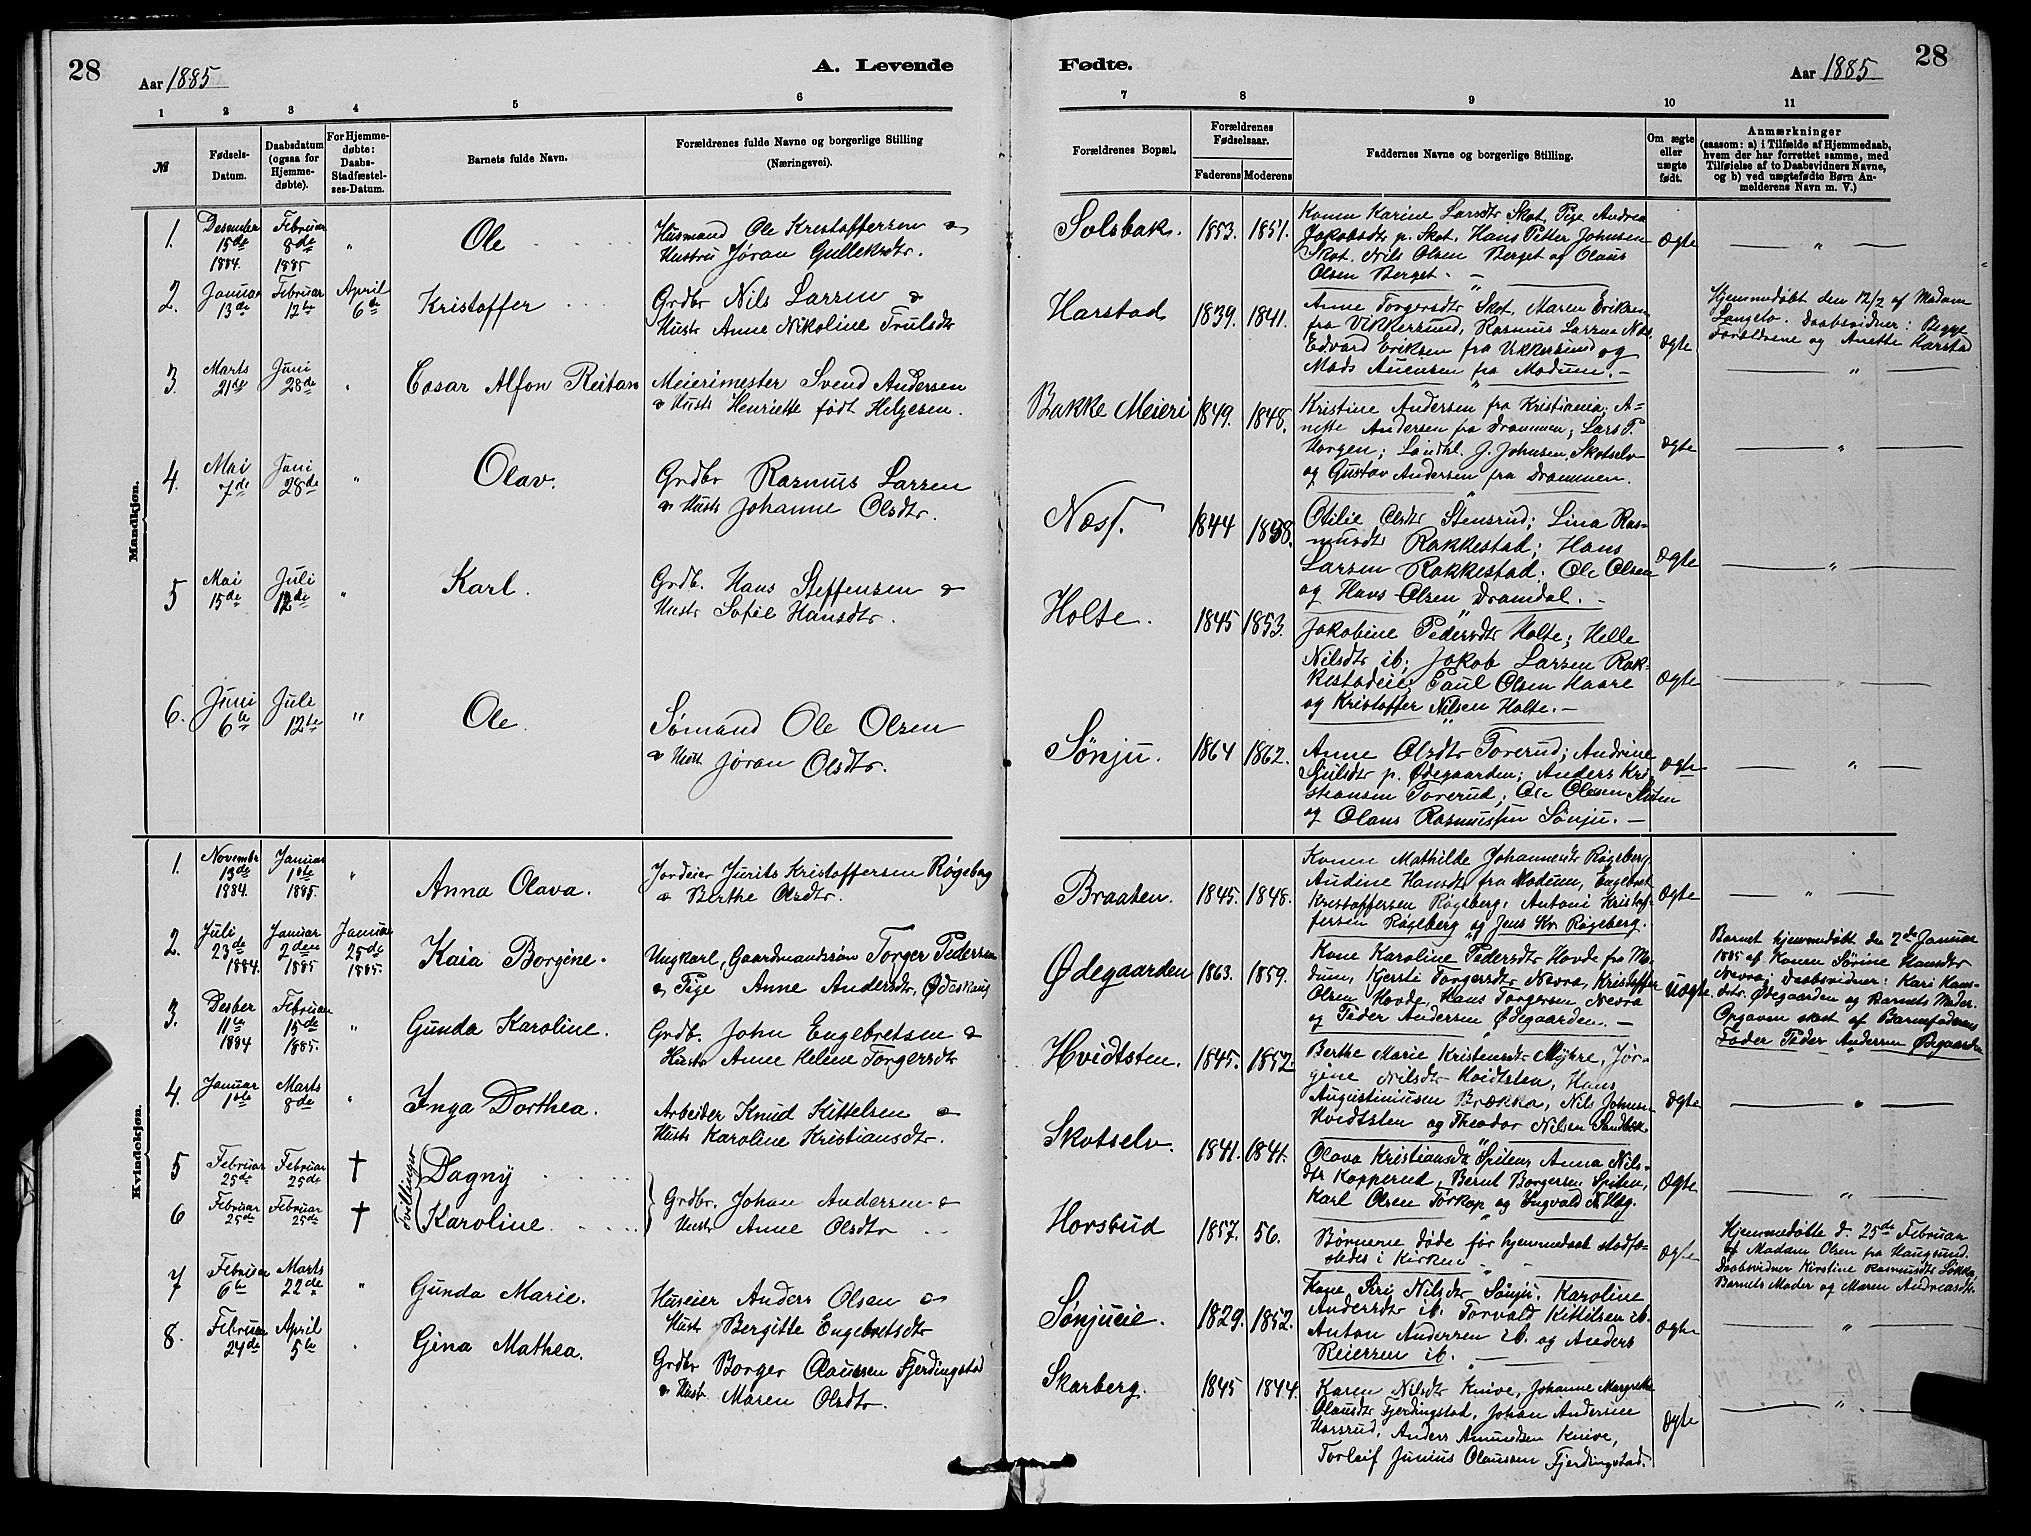 28
Aar 1885
A. Levende
1 2 3 4 5 6
№
Fødsels-Datum.
Daabsdatum (ogsaa for Hjemmedøbte).
For Hjemmedøbte: Daabs-Stadfæstelses-Datum.
Barnets fulde Navn.
Forældrenes fulde Navne og borgerlige Stilling (Næringsvei).
Mandkjøn.
1. Desember 15de 1884. Februar 8de 1885 " Ole Husmand Ole Kristoffersen &
Hustru Jøran Gulleksdtr.
2. Januar 13de Februar 12te April 6te Kristoffer Grdbr Nils Larsen &
Hustr Anne Nikoline Trulsdtr
3. Marts 21de Juni 28de " Cosar Alfon Reitan Meierimester Svend Andersen
& Hustr Henriette født Helgesen.
4. Mai 7de Juni 28de " Olav. Grdbr Rasmus Larsen
& Hustr Johanne Olsdtr.
5 Mai 15de Juli 12de " Karl. Grdb. Hans Steffensen &
Hustr Sofie Hansdtr.
6. Juni 6te Juli 12te " Ole Sømand Ole Olsen
& Hustr Jøran Olsdtr.
Kvindekjøn.
1. Novembr 13de 1884. Januar 1ste 1885. " Anna Olava. Jordeier Jurits Kristoffersen Røgeberg
& Berthe Olsdtr.
2. Juli 23de 1884. Januar 2den 1885 Januar 25de 1885. Kaia Borgine. Ungkarl, Gaardmandssøn Torger Pedersen
& Pige Anne Andersdtr, Ødeskaug
3. Desber 11te 1884 Februar 15de 1885. " Gunda Karoline. Grdb. John Engebretsen &
Hustr Anne Helene Torgersdtr
4. Januar 1ste Marts 8de " Inga Dorthea. Arbeider Knud Kittelsen &
Hustr Karoline Kristiansdtr.
5 Februar 25de Februar 25de † Tvillinger Dagny Grdbr. Johan Andersen &
6 Februar 25de Februar 25de † Karoline. Hustr Anne Olsdtr
7 Februar 6te Marts 22de " Gunda Marie. Huseier Anders Olsen &
Hustr Bergitte Engebretsdtr
8. Februar 24de April 5te " Gina Mathea. Grdbr Borger Olausen Fjerdingstad
& Hustr Maren Olsdtr.
Fødte.
Aar 1885
28
7 8 9 10 11
Forældrenes Bopæl.
Forældrenes Fødselsaar.
Faderens Moderens
Faddernes Navne og borgerlige Stilling.
Om ægte eller uægte født.
Anmærkninger
(saasom: a) i Tilfælde af Hjemmedaab,
hvem der har forrettet samme, med
Tilføielse af to Daabsvidners Navne,
og b) ved uægtefødte Børn Anmelderens Navn m. V.)
Solsbak. 1853. 1851. Konen Karine Larsdtr Skot, Pige Andrea
Jakobsdtr p. Skot, Hans Petter Johnsen
Skot. Nils Olsen Berget og Olaus
Olsen Berget. –
Ægte
Harstad 1839. 1841. Anne Torgersdtr Skot, Maren Eriksen
fra Vikkersund, Rasmus Larsen Næs
Edvard Eriksen fra Vikkersund og
Mads Auensen fra Modum. –
Ægte
Hjemmedøbt den 12/2 af Madam
Langelv. Daabsvidner: Begge
Forældrene og Anette Harstad
Bakke Meieri 1849. 1848. Kristine Andersen fra Kristiania; A=
nette Andersen fra Drammen; Lars P.
Horgen; Landhl. J. Johnsen, Skotselv
og Gustav Andersen fra Drammen.
Ægte
Næss. 1844 1848. Otilie Olsdtr Stensrud; Lina Ras=
musdtr Rakkestad; Hans
Larsen Rakkestad. Ole Olsen
og Hans Olsen Dramdal. –
Ægte
Holte. 1845 1853. Jakobine Pedersdtr Holte; Helle
Nilsdtr ib; Jakob Larsen Rak-
kestadeie; Paul Olsen Haare
og Kristoffer Nilsen Holte. –
Ægte
Sønju. 1864 1862. Anne Olsdtr Torerud; Andrine
Sjulsdtr p. Ødegaarden; Anders Kri
stiansen Torerud; Ole Olsen
og Olaus Rasmussen Sønju. –
Ægte
Braaten. 1845. 1848. Konen Mathilde Johannesdtr Røgeberg
Audine Hansdtr fra Modum, Engebret
Kristoffersen Røgeberg, Antoni Kristof-
fersen Røgeberg og Jens Kr. Røgeberg.
Ægte
Ødegaarden 1863. 1859. Kone Karoline Pedersdtr Hovde fra Mo-
dum, Kjersti Torgersdtr Nevra, Kristoffer
Olsen Hovde, Hans Torgersen Nevra
og Peder Andersen Ødegaarden. –
Uægte
Barnet hjemmedøbt den 2de Januar
1885 af Konen Sørine Hansdtr
Nevra; Daabsvidner: Kari Hans-
dtr. Ødegaarden og Barnets Moder.
Opgaven skeet af Barnefaderens
Fader Peder Andersen Ødegaarden
Hvidtsten. 1845. 1852. Berthe Marie Kristensdtr Myhre, Jør-
gine Nilsdtr Hvidtsten, Hans
Augustinusen Brækka, Nils Johnsen
Hvidtsten og Theodor Nilsen Sandbek.
Ægte
Skotselv 1841. 1841. Olava Kristiansdtr Spiten, Anna Nils-
dtr Kopperud, Bernt Borgersen Spiten,
Karl Olsen Torkop og Yngvald
Ægte
Horsrud 1857. 56. Børnene døde før hjemmedaab stadfæ-
stedes i Kirken
Ægte
Hjemmedøbte d. 25de Februar
af Madam Olsen fra Haugsund.
Daabsvidner Kirstine Rasmusdtr Løkka,
Barnets Moder og Maren Andreasdtr.
Sønjueie. 1829. 1852. Kone Siri Nilsdtr Sønju, Karoline
Andersdtr ib. Torvald Kittilsen ib.
Anton Andersen ib. og Anders
Reiersen ib. –
Ægte
Skarberg. 1845 1844. Karen Nilsdtr Knive, Johanne Margrethe
Olausdtr Fjerdingstad, Johan Andersen
Horsrud, Anders Amundsen Knive,
Torleif Junius Olausen Fjerdingstad.
Ægte